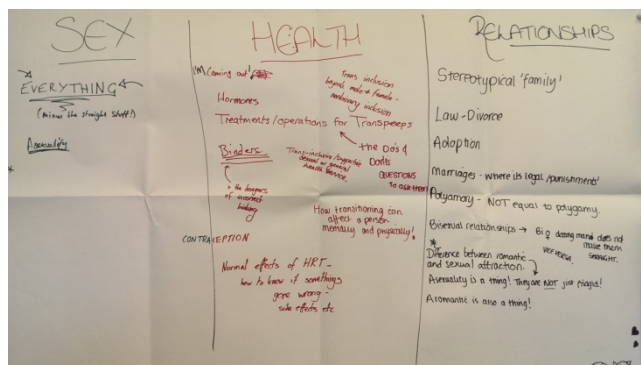 SEX
EVERYTHING
(minus the straight stuff!)
Asexuality
HEALTH
I'M Coming out!
Trans inclusion
beyond male & female -
nonbinary inclusion
Hormones
Treatments/operations for Transpeeps
the Do's &
Don'ts
QUESTIONS
to ask them
Binders
+ the dangers
of incorrect
binding
Trans-inclusive/supportive
sexual or general
health service.
How transitioning can
affect a person -
mentally and physically!
CONTRACEPTION
Normal effects of HRT -
how to know if something's
gone wrong -
side effects etc
RELATIONSHIPS
Stereotypical 'family'
Law-Divorce
Adoption
Marriages - where its legal/punishments!
Polyamory - NOT equal to polygamy.
Bisexual relationships → Bi ♀ dating man does not
make them
straight.
VICE VERSA.
* Difference between romantic
and sexual attraction.
Asexuality is a thing! They are NOT just frigid!
Aromantic is also a thing!